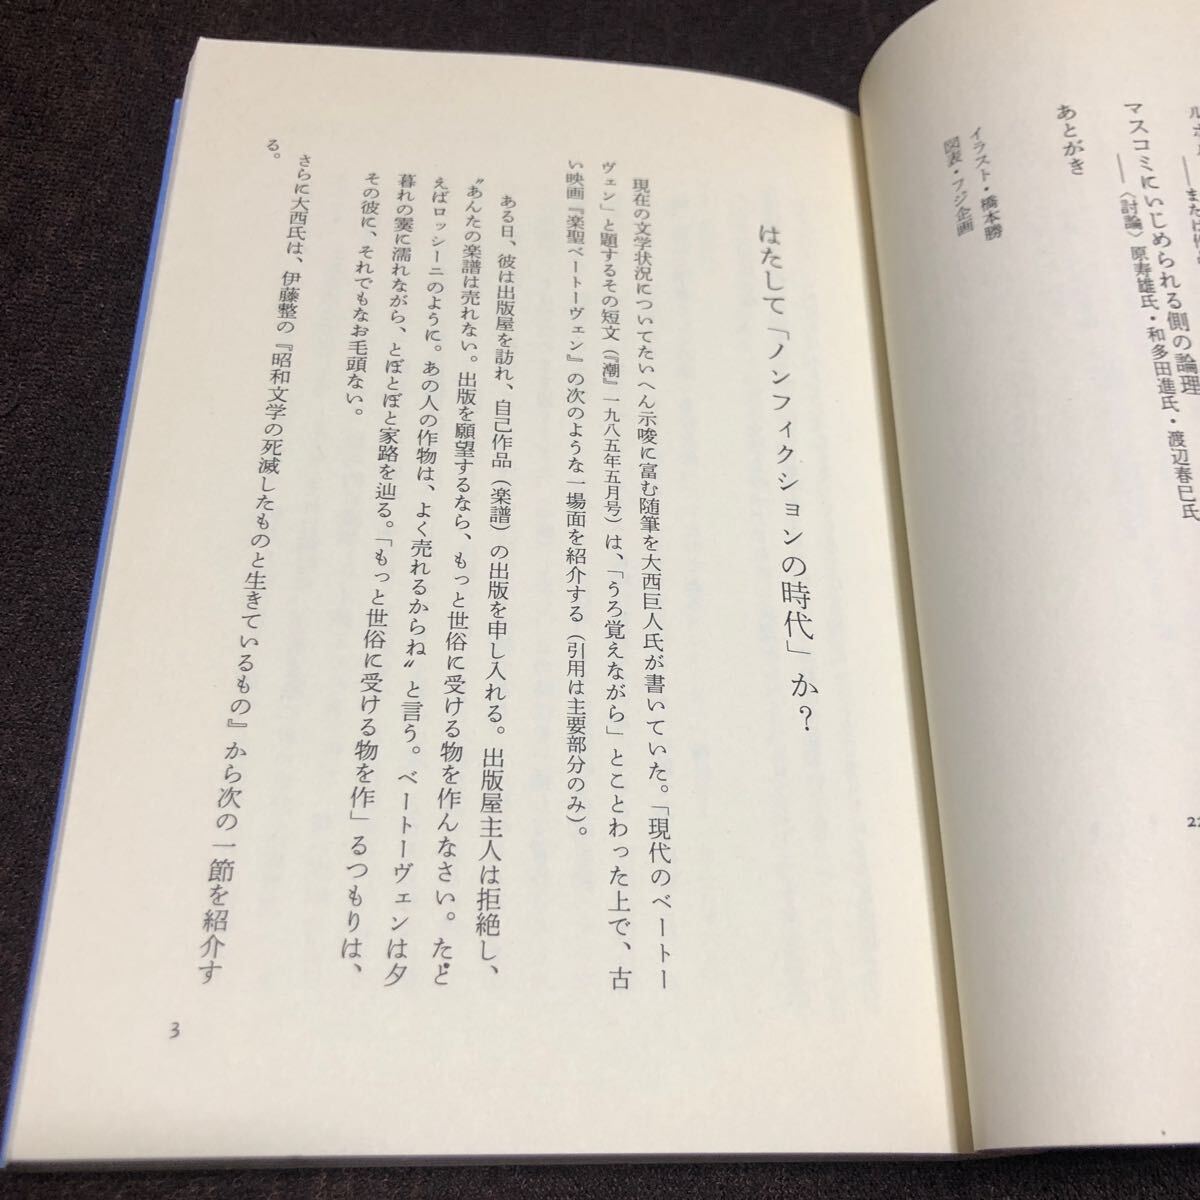 マスコミにいじめられる側の論理
――〈討論〉原寿雄氏・和多田進氏・渡辺春巳氏
あとがき
イラスト・橋本勝
図表・フジ企画
はたして「ノンフィクションの時代」か？
現在の文学状況についてたいへん示唆に富む随筆を大西巨人氏が書いていた。「現代のベートー
ヴェン」と題するその短文（『潮』一九八五年五月号）は、「うろ覚えながら」とことわった上で、古
い映画『楽聖ベートーヴェン』の次のような一場面を紹介する（引用は主要部分のみ）。
ある日、彼は出版屋を訪れ、自己作品（楽譜）の出版を申し入れる。出版屋主人は拒絶し、
〝あんたの楽譜は売れない。出版を願望するなら、もっと世俗に受ける物を作んなさい。たと
えばロッシーニのように。あの人の作物は、よく売れるからね〟と言う。ベートーヴェンは夕
暮れの霙に濡れながら、とぼとぼと家路を辿る。「もっと世俗に受ける物を作」るつもりは、
その彼に、それでもなお毛頭ない。
さらに大西氏は、伊藤整の『昭和文学の死滅したものと生きているもの』から次の一節を紹介す
る。
3